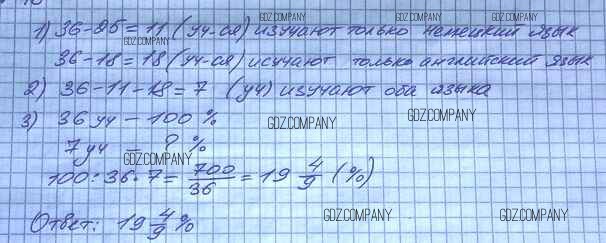 1) 36-25=11 (уч-ся) изучают только немецкий язык
36-18=18 (уч-ся) исучают только английский язык
2) 36-11-18=7 (уч) изучают оба языка
3) 36 уч — 100 %
7 уч — ? %
100:36·7= 700/36 = 19 4/9 (%)
Ответ: 19 4/9 %
GDZ.COMPANY
GDZ.COMPANY
GDZ.COMPANY
GDZ.COMPANY
GDZ.COMPANY
GDZ.COMPANY
GDZ.COMPANY
GDZ.COMPANY
GDZ.COMPANY